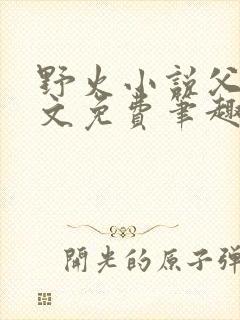 野火小说父
文免费笔趣
開光的原子弹